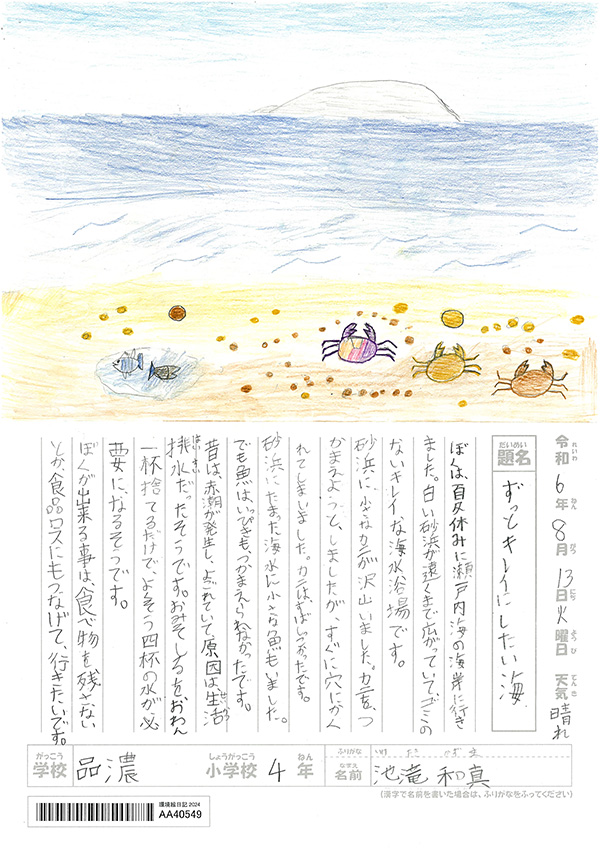 令和6年8月13日火曜日 天気 晴れ
れいわ ねん がつ にち ようび てんき
だいめい
題名 ずっとキレイにしたい海
ぼくは、夏休みに瀬戸内海の海岸に行き
ました。白い砂浜が遠くまで広がっていて、ゴミの
ないキレイな海水浴場です。
砂浜に、小さなカニが沢山いました。カニを、つ
かまえようと、しましたが、すぐに穴にかく
れてしまいました。カニは、すばしっこかったです。
砂浜にたまった海水に小さな魚もいました。
でも魚は、いっぴきも、つかまえられなかったです。
昔は、赤潮が発生し、よごれていて原因は生活
排水だったそうです。おみそしるをおわん
一杯捨てるだけで、よくそう四杯の水が必
要に、なるそうです。
ぼくが出来る事は、食べ物を残さない
とか、食品ロスにもつなげて、行きたいです。
がっこう
学校
品濃
しょうがっこう
小学校
4
ねん
年
ふりがな
なまえ
名前 池滝 和真
(漢字で名前を書いた場合は、ふりがなをふってください)
環境絵日記2024
AA40549